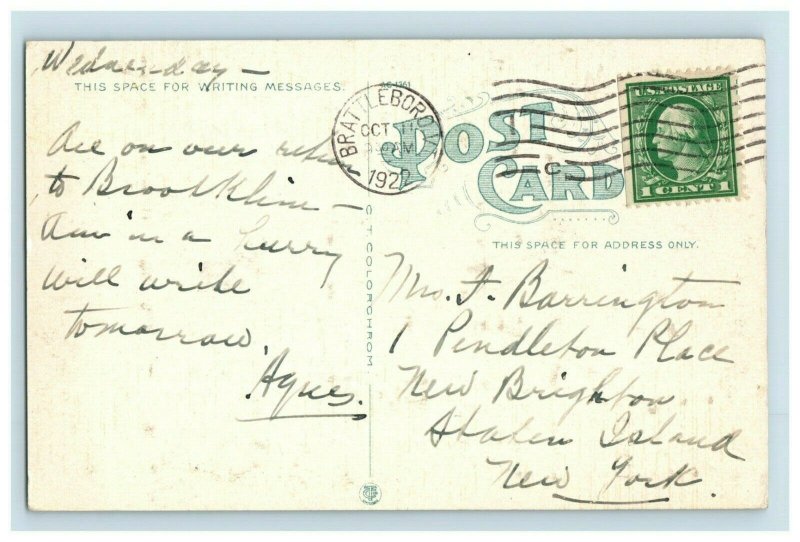 Wednesday —
THIS SPACE FOR WRITING MESSAGES.
All on our return
to Brookline —
Am in a hurry
will write
tomorrow.
Agnes.
C. T. COLORCHROM.
BRATTLEBORO
OCT 11
AM
192
POST
CARD
U.S. POSTAGE
1 CENT 1
THIS SPACE FOR ADDRESS ONLY.
Mrs. F. Barrington
1 Pendleton Place
New Brighton
Staten Island
New York.